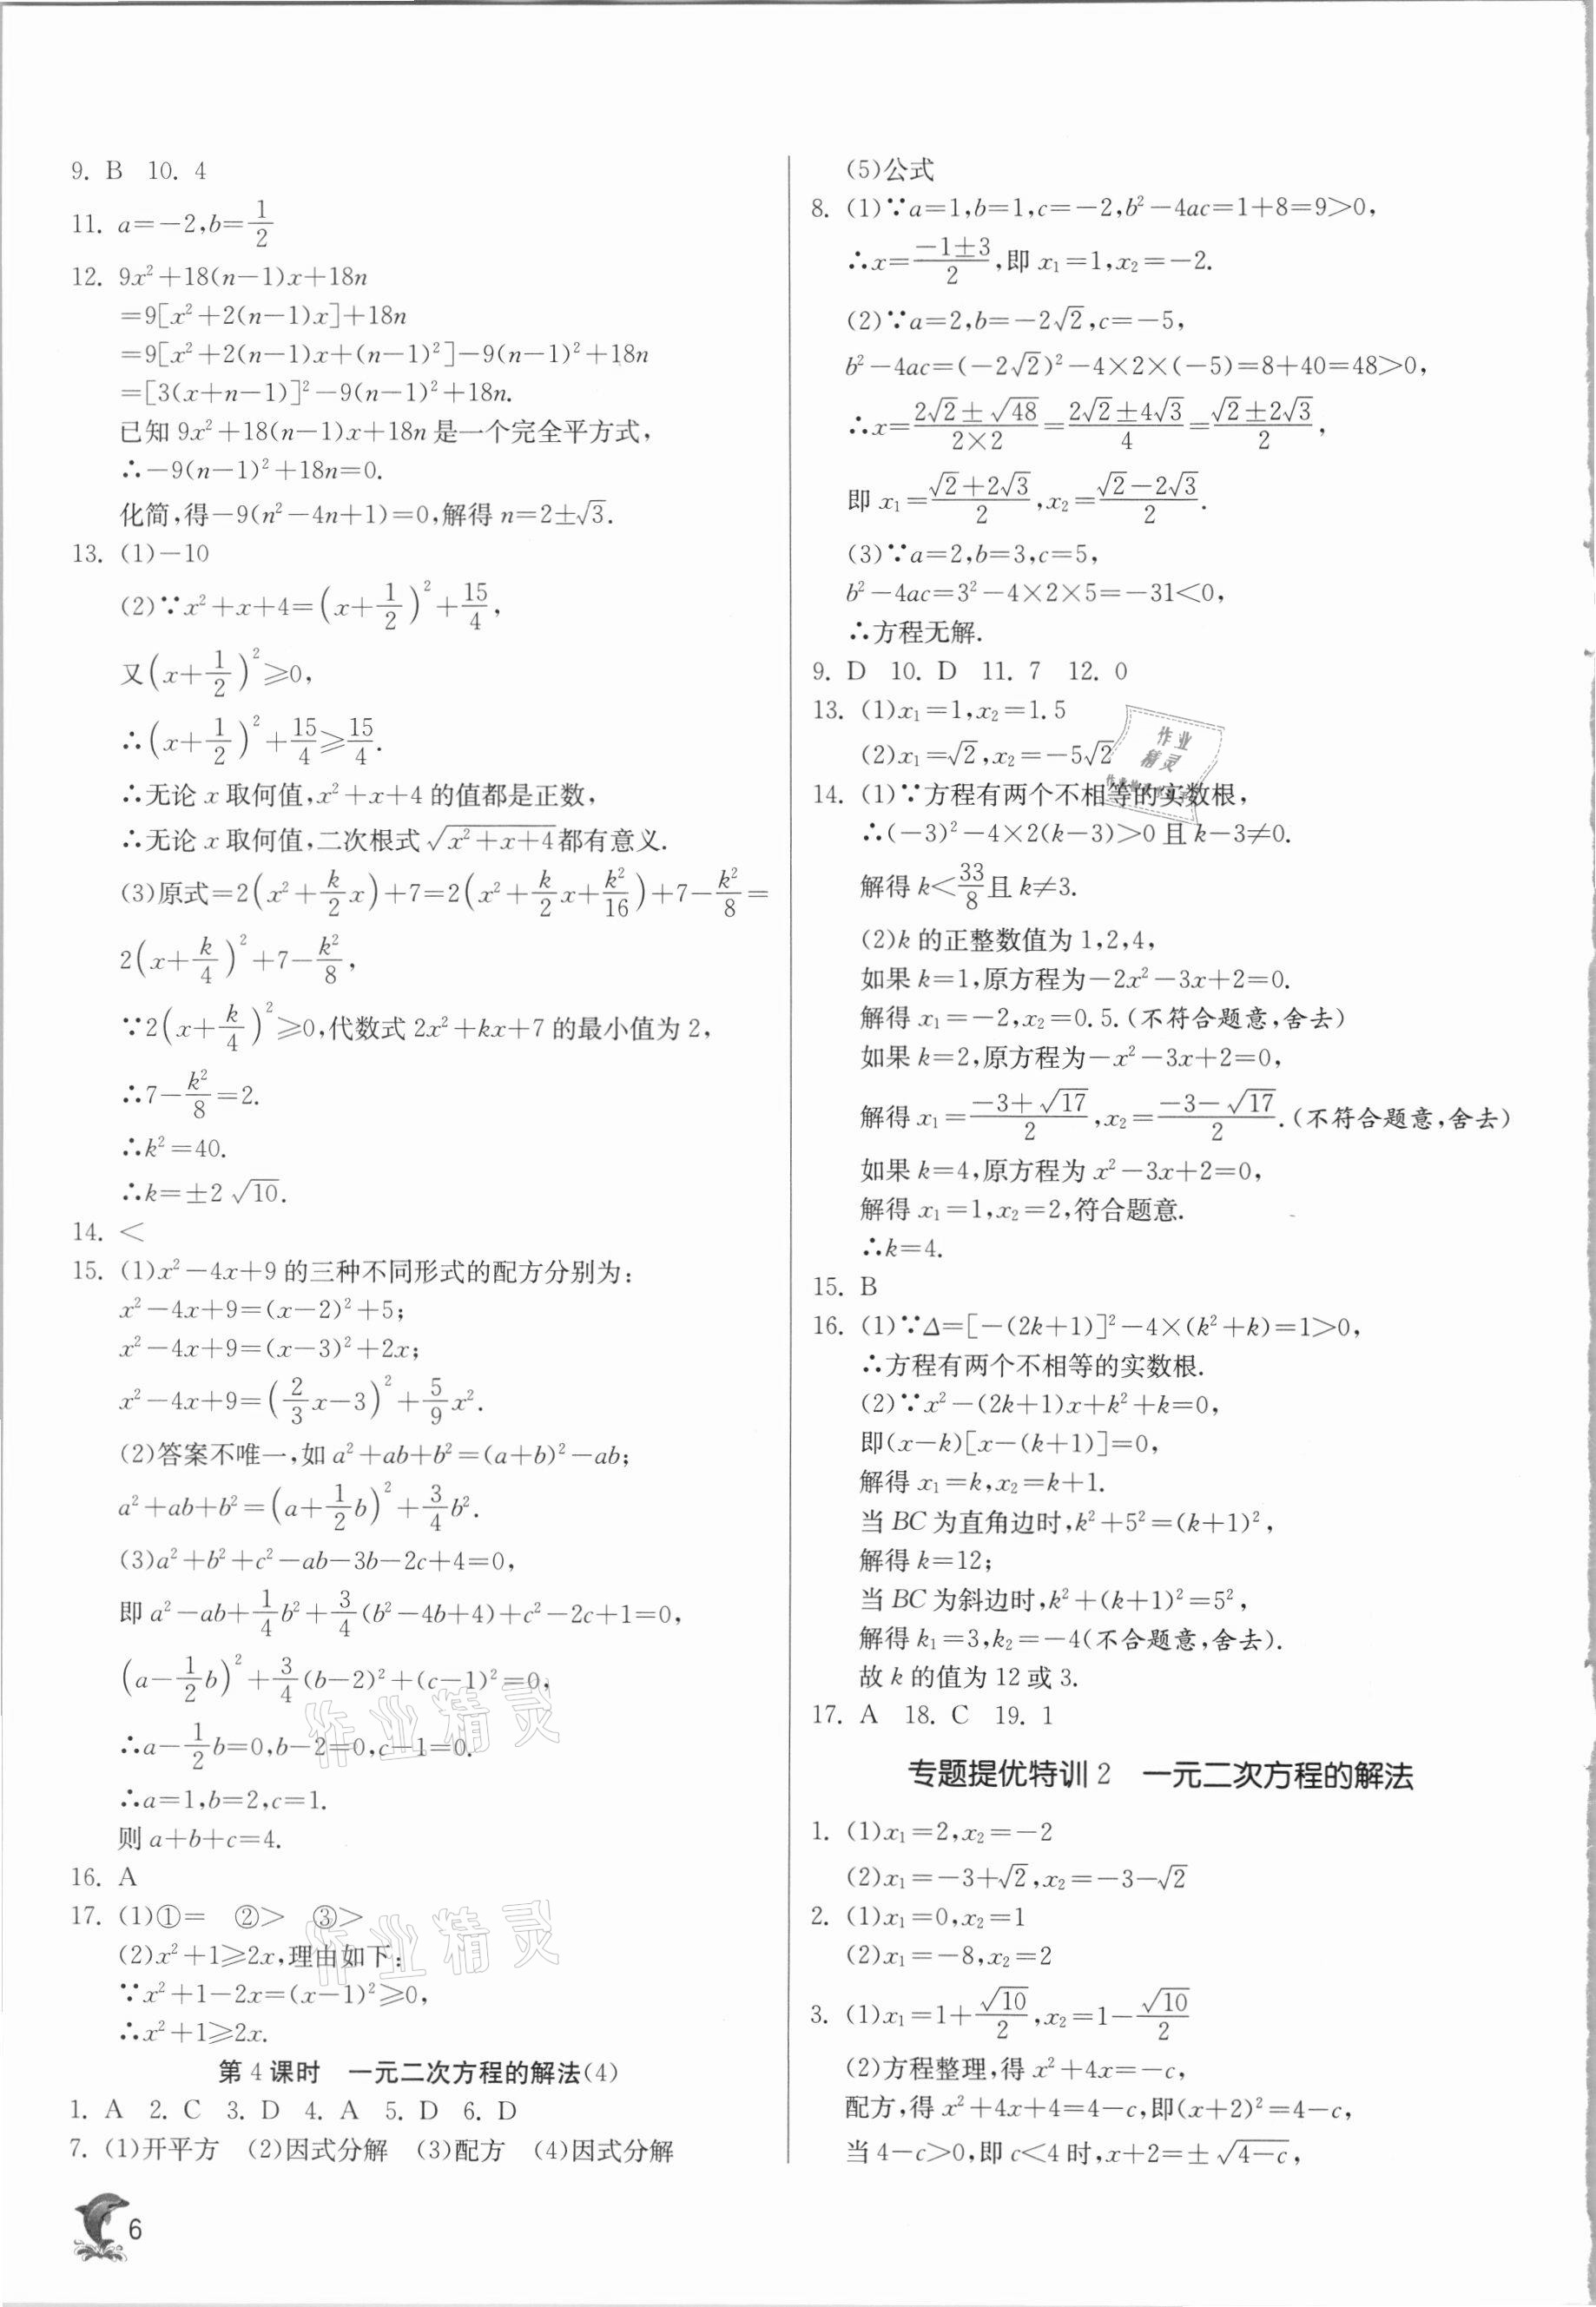 9. B 10. 4
11. a=-2,b=1/2
12. 9x²+18(n-1)x+18n
=9[x²+2(n-1)x]+18n
=9[x²+2(n-1)x+(n-1)²]-9(n-1)²+18n
=[3(x+n-1)]²-9(n-1)²+18n.
已知 9x²+18(n-1)x+18n 是一个完全平方式,
∴-9(n-1)²+18n=0.
化简,得-9(n²-4n+1)=0,解得 n=2±√3.
13. (1)-10
(2)∵x²+x+4=(x+1/2)²+15/4,
又(x+1/2)²≥0,
∴(x+1/2)²+15/4≥15/4.
∴无论 x 取何值,x²+x+4 的值都是正数,
∴无论 x 取何值,二次根式√(x²+x+4)都有意义.
(3)原式=2(x²+k/2 x)+7=2(x²+k/2 x+k²/16)+7-k²/8=
2(x+k/4)²+7-k²/8,
∵2(x+k/4)²≥0,代数式 2x²+kx+7 的最小值为 2,
∴7-k²/8=2.
∴k²=40.
∴k=±2√10.
14. <
15. (1)x²-4x+9 的三种不同形式的配方分别为:
x²-4x+9=(x-2)²+5;
x²-4x+9=(x-3)²+2x;
x²-4x+9=(2/3 x-3)²+5/9 x².
(2)答案不唯一,如 a²+ab+b²=(a+b)²-ab;
a²+ab+b²=(a+1/2 b)²+3/4 b².
(3)a²+b²+c²-ab-3b-2c+4=0,
即 a²-ab+1/4 b²+3/4(b²-4b+4)+c²-2c+1=0,
(a-1/2 b)²+3/4(b-2)²+(c-1)²=0,
∴a-1/2 b=0,b-2=0,c-1=0.
∴a=1,b=2,c=1.
则 a+b+c=4.
16. A
17. (1)①= ②> ③>
(2)x²+1≥2x,理由如下:
∵x²+1-2x=(x-1)²≥0,
∴x²+1≥2x.
第 4 课时 一元二次方程的解法(4)
1. A 2. C 3. D 4. A 5. D 6. D
7. (1)开平方 (2)因式分解 (3)配方 (4)因式分解
6
(5)公式
8. (1)∵a=1,b=1,c=-2,b²-4ac=1+8=9>0,
∴x=(-1±3)/2,即 x₁=1,x₂=-2.
(2)∵a=2,b=-2√2,c=-5,
b²-4ac=(-2√2)²-4×2×(-5)=8+40=48>0,
∴x=(2√2±√48)/(2×2)=(2√2±4√3)/4=(√2±2√3)/2,
即 x₁=(√2+2√3)/2,x₂=(√2-2√3)/2.
(3)∵a=2,b=3,c=5,
b²-4ac=3²-4×2×5=-31<0,
∴方程无解.
9. D 10. D 11. 7 12. 0
13. (1)x₁=1,x₂=1.5
(2)x₁=√2,x₂=-5√2
14. (1)∵方程有两个不相等的实数根,
∴(-3)²-4×2(k-3)>0 且 k-3≠0.
解得 k<33/8 且 k≠3.
(2)k 的正整数值为 1,2,4,
如果 k=1,原方程为-2x²-3x+2=0.
解得 x₁=-2,x₂=0.5.(不符合题意,舍去)
如果 k=2,原方程为-x²-3x+2=0,
解得 x₁=(-3+√17)/2,x₂=(-3-√17)/2.(不符合题意,舍去)
如果 k=4,原方程为 x²-3x+2=0,
解得 x₁=1,x₂=2,符合题意.
∴k=4.
15. B
16. (1)∵Δ=[-(2k+1)]²-4×(k²+k)=1>0,
∴方程有两个不相等的实数根.
(2)∵x²-(2k+1)x+k²+k=0,
即(x-k)[x-(k+1)]=0,
解得 x₁=k,x₂=k+1.
当 BC 为直角边时,k²+5²=(k+1)²,
解得 k=12;
当 BC 为斜边时,k²+(k+1)²=5²,
解得 k₁=3,k₂=-4(不合题意,舍去).
故 k 的值为 12 或 3.
17. A 18. C 19. 1
专题提优特训 2 一元二次方程的解法
1. (1)x₁=2,x₂=-2
(2)x₁=-3+√2,x₂=-3-√2
2. (1)x₁=0,x₂=1
(2)x₁=-8,x₂=2
3. (1)x₁=1+√10/2,x₂=1-√10/2
(2)方程整理,得 x²+4x=-c,
配方,得 x²+4x+4=4-c,即(x+2)²=4-c,
当 4-c>0,即 c<4 时,x+2=±√(4-c),
作业
精灵
作业精灵
作业精灵